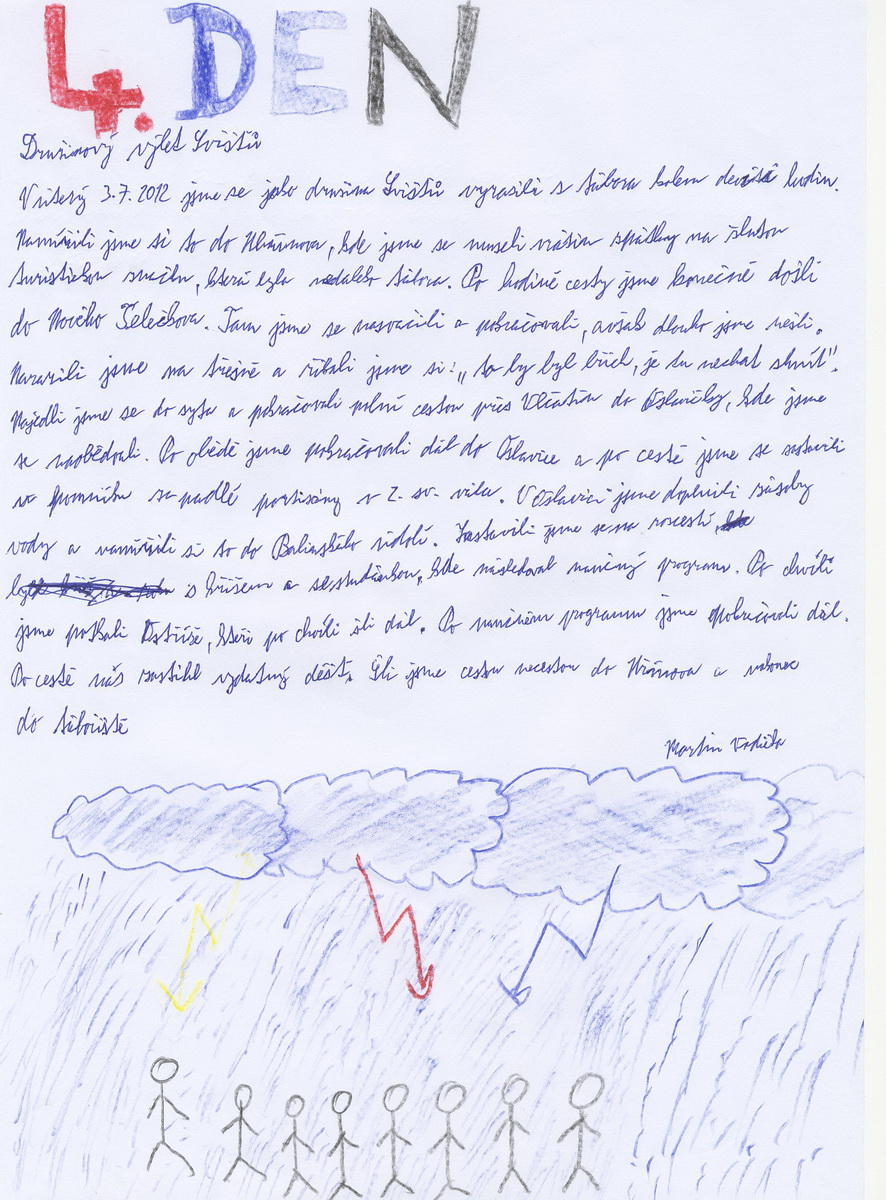 4. DEN
Družinový výlet Svišťů
V úterý 3.7.2012 jsme se jako družina Svišťů vyrazili s tábora kolem devíti hodin.
Namířili jsme si to do Uhřínova, kde jsme se museli vrátit zpátky na žlutou
turistickou značku, která byla nedaleko tábora. Po hodině cesty jsme konečně došli
do Nového Telečkova. Tam jsme se nasvačili a pokračovali, avšak dlouho jsme nešli.
Narazili jsme na třešně a říkali jsme si: "to by byl hřích, je tu nechat shnít".
Najedli jsme se do syta a pokračovali polní cestou přes Vlčatín do Oslavičky, kde jsme
se naobědvali. Po obědě jsme pokračovali dál do Oslavice a po cestě jsme se zastavili
u pomníku za padlé partizány v 2. sv. válce. V Oslavici jsme doplnili zásoby
vody a namířili si to do Balinského údolí. Zastavili jsme se na rozcestí,
s křížem a se studánkou, kde následoval naučný program. Po chvíli
jsme potkali Ostříže, kteří po chvíli šli dál. Po naučném programu jsme pokračovali dál.
Po cestě nás zastihl vydatný déšť. Šli jsme cestou necestou do Uhřínova a nakonec
do tábořiště
Martin